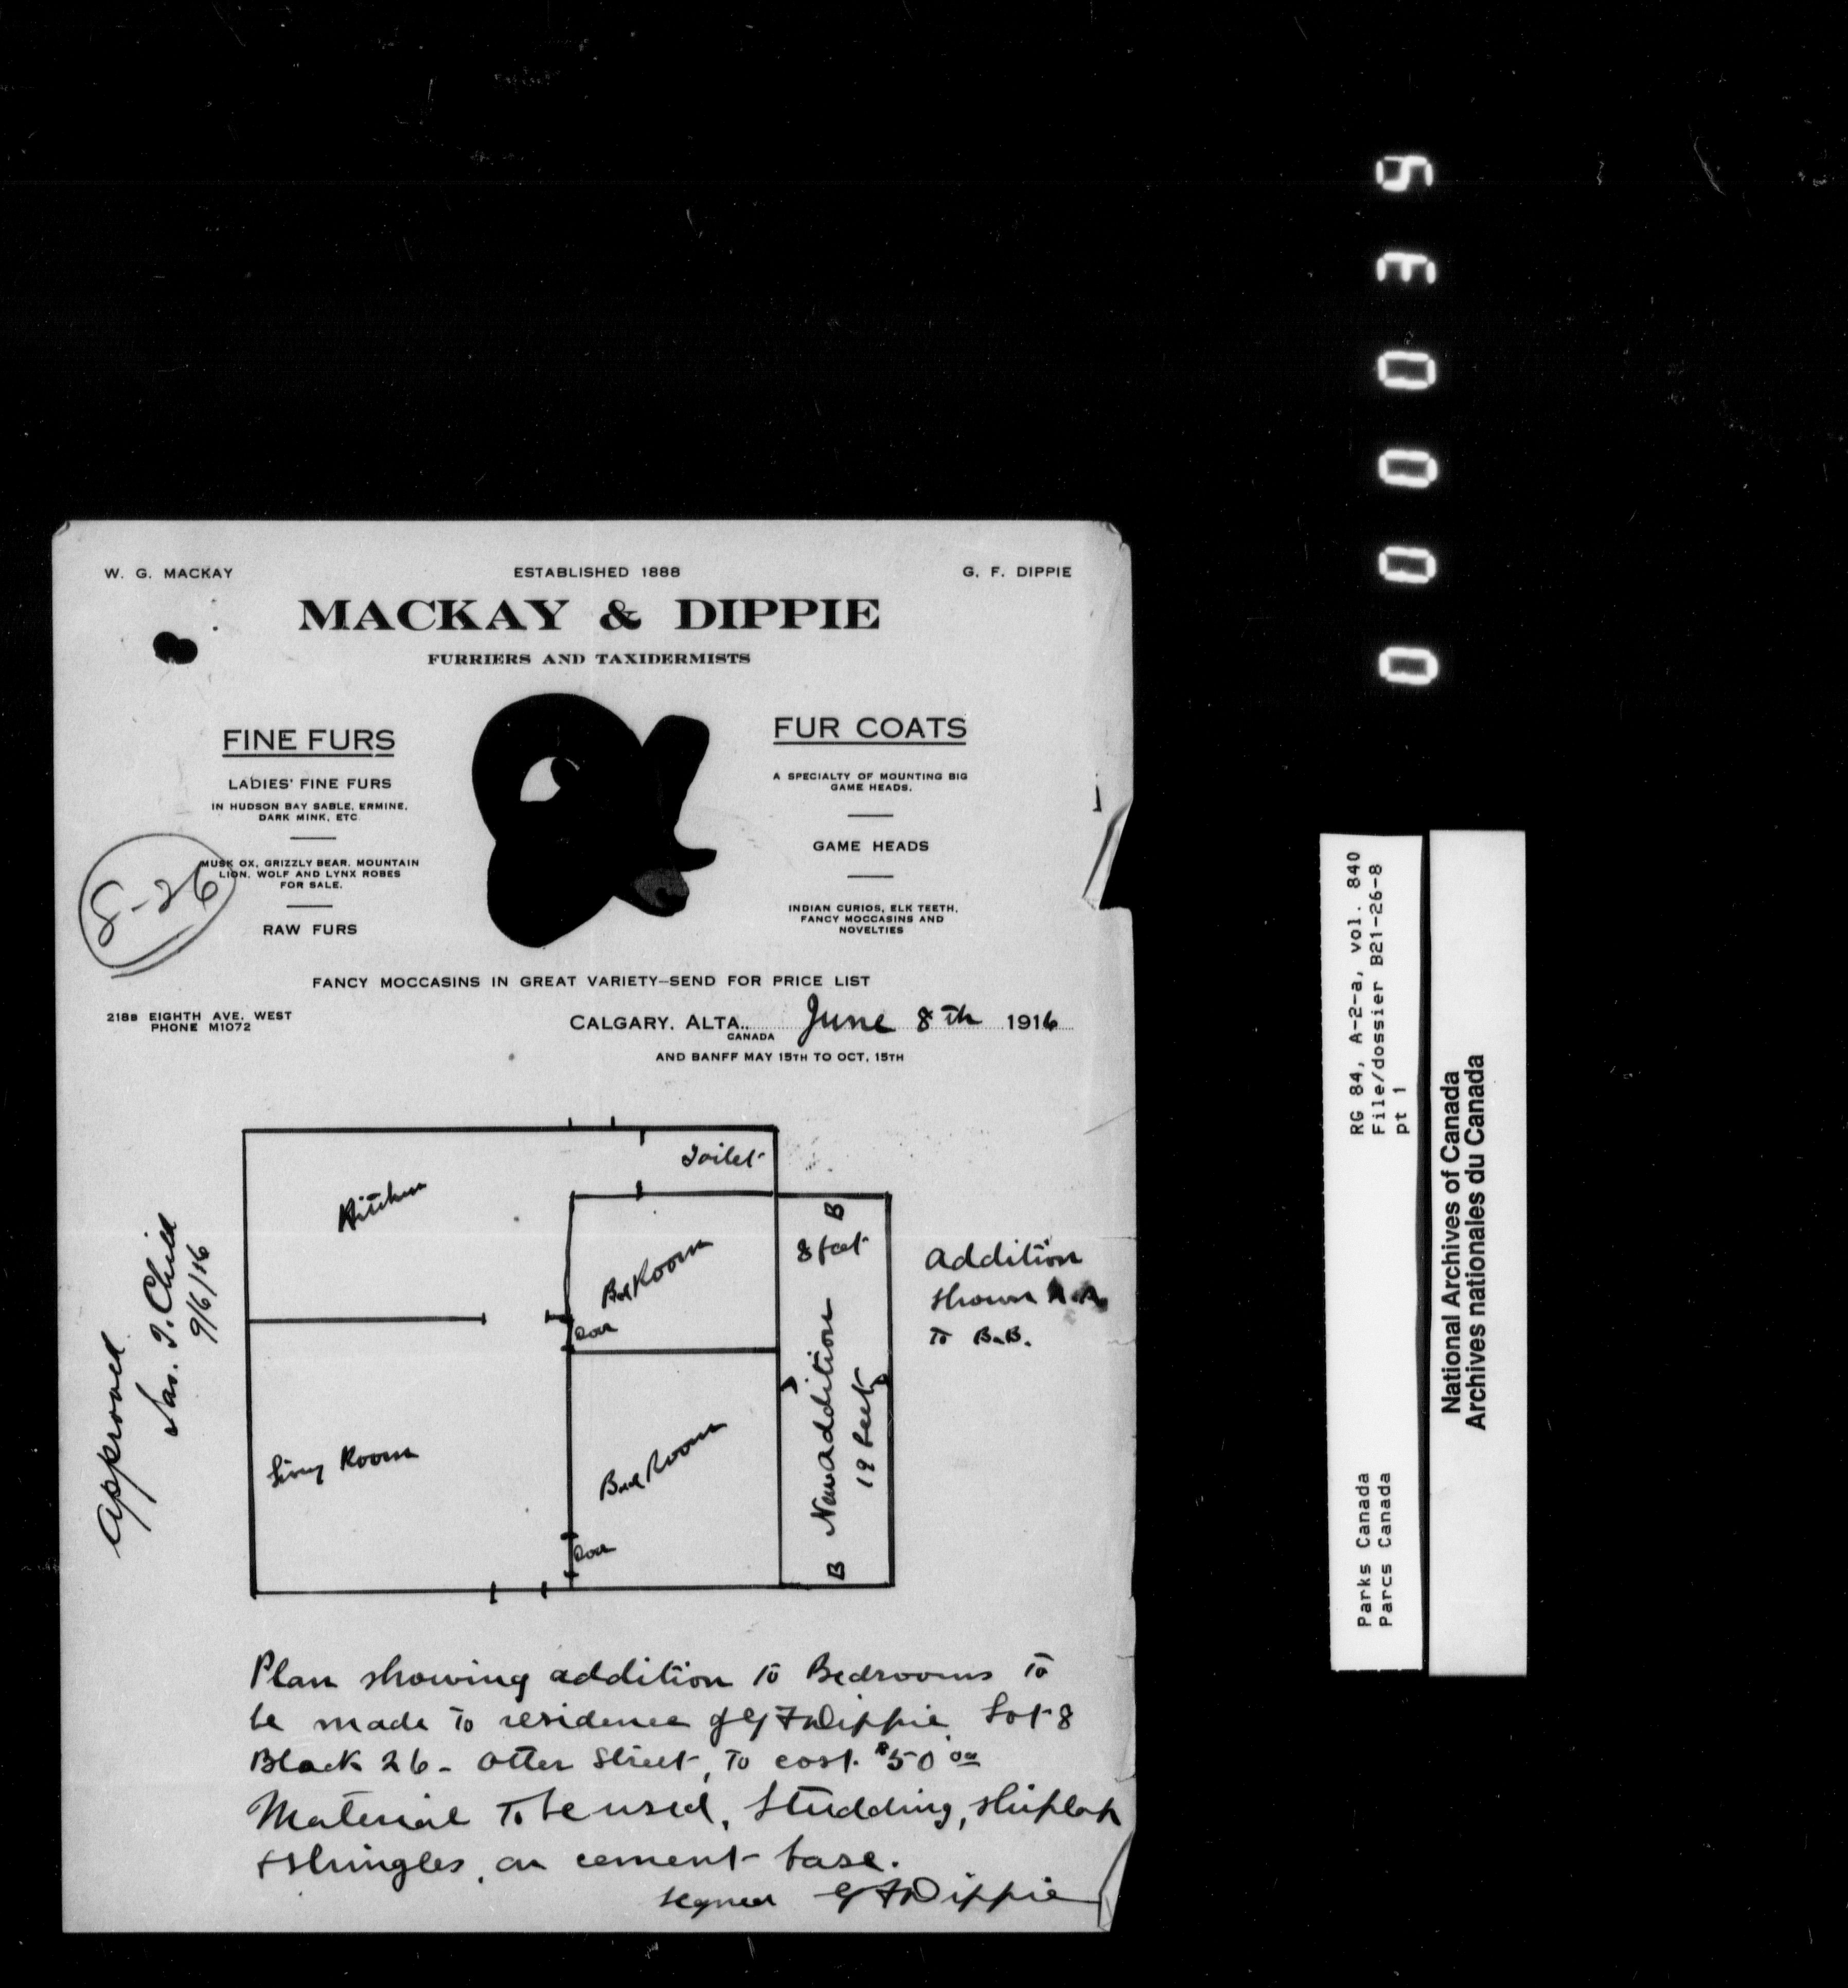 W. G. MACKAY ESTABLISHED 1888 G. F. DIPPIE
MACKAY & DIPPIE
FURRIERS AND TAXIDERMISTS
FINE FURS
LADIES' FINE FURS
IN HUDSON BAY SABLE, ERMINE,
DARK MINK, ETC.
MUSK OX, GRIZZLY BEAR, MOUNTAIN
LION, WOLF AND LYNX ROBES
FOR SALE.
RAW FURS
8-26
FUR COATS
A SPECIALTY OF MOUNTING BIG
GAME HEADS.
GAME HEADS
INDIAN CURIOS, ELK TEETH,
FANCY MOCCASINS AND
NOVELTIES
FANCY MOCCASINS IN GREAT VARIETY—SEND FOR PRICE LIST
218B EIGHTH AVE. WEST
PHONE M1072
CALGARY, ALTA., June 8th 1916
CANADA
AND BANFF MAY 15TH TO OCT. 15TH
Toilet
Kitchen
Bed Room
Door
Living Room
Bed Room
Door
B
8 feet
B
New addition
19 feet
B
addition
shown A.A
To B.B.
Approved
Jas. T. Child
9/6/16
Plan showing addition to Bedrooms to
be made to residence of G F Dippie Lot 8
Block 26 - Otter Street, to cost $50 00
Material To be used, Studding, shiplap
& shingles, on cement base.
signed G F Dippie
000039
RG 84, A-2-a, vol. 840
File/dossier B21-26-8
pt 1
Parks Canada
Parcs Canada
National Archives of Canada
Archives nationales du Canada